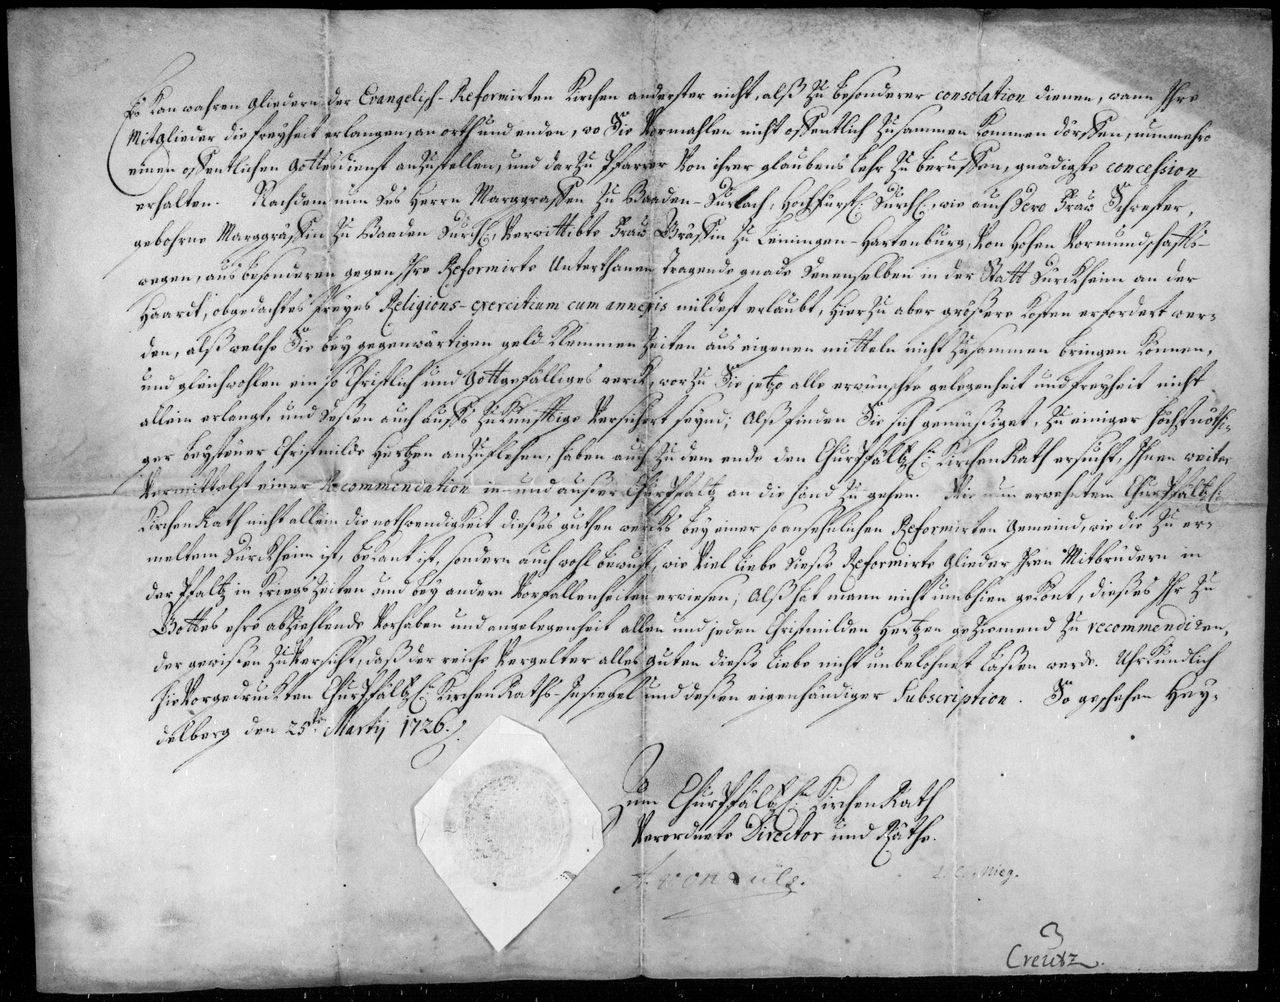 Es kan wahren Gliedern der Evangelisch-Reformirten Kirchen anderster nicht, alß zu besonderer consolation dienen, wann Ihre
Mitglieder die freyheit erlangen, an orth und enden, wo Sie Vormahlen nicht offentlich zusammen kommen dörffen, nunmehro
einen offentlichen Gottesdienst anzustellen, und darzu Pfarrer Von ihrer glaubens Lehr zu beruffen, gnädigste concession
erhalten. Nachdem nun des Herrn Marggraffen zu Baaden-Durlach, Hochfürstl. Durchl., wie auch Dero Frau Schwester,
gebohrne Marggräffin zu Baaden Durchl., Verwittibte Frau Gräffin zu Leiningen-Hartenburg, Von Hohen Vormundschaffts-
wegen, aus besonderen gegen Ihre Reformirte Unterthanen tragende gnade Denenselben in der Statt Dürckheim an der
Haardt, obgedachtes freyes Religions-exercitium cum annexis mildest erlaubt, hierzu aber größere Kosten erfordert wer-
den, alß welche Sie bey gegenwärtigen geld Klemmen Zeiten aus eigenen mitteln nicht zusammen bringen können,
und gleichwohlen ein so Christlich und Gottgefälliges werck, worzu Sie jetzo alle erwünschte gelegenheit und freyheit nicht
allein erlangt, und dessen auch auffs zukünfftige Versichert seynd; Alß finden Sie sich gemüßiget, zu einiger höchstnöthi-
ger beysteuer Christmilde Hertzen anzuflehen, haben auch zu dem ende den ChurPfältz. KirchenRath ersucht, Ihnen weiter
Vermittelst einer Recommendation in- und außer ChurPfaltz an die hand zu gehen. Wie nun erwehntem ChurPfältz.
KirchenRath nicht allein die nothwendigkeit dießes guthen wercks bey einer so ansehnlichen Reformirten Gemeind, wie die zu er-
meltem Dürckheim ist, bekant ist, sondern auch wohl bewust, wie Viel Liebe dieße Reformirte Glieder Ihren Mitbrüdern in
der Pfaltz in Kriegs Zeiten und bey andern Vorfallenheiten erwiesen; Alß hat mann nicht umbhien gekont, dießes Ihr zu
Gottes ehre abziehlende Vorhaben und angelegenheit allen und jeden Christmilden Hertzen geziemend zu recommendiren,
der gewißen zuVersicht, daß der reiche Vergelter alles guten dieße Liebe nicht unbelohnet laßen werde. Uhrkundlich
hieVorgedruckten ChurPfältz. KirchenRaths-Insiegel und deßen eigenhändiger Subscription. So geschehen Hey-
delberg den 25ten Martij 1726.
Zum ChurPfältz. KirchenRath
Verordnete Director und Räthe.
L. C. Mieg.
Creutz.